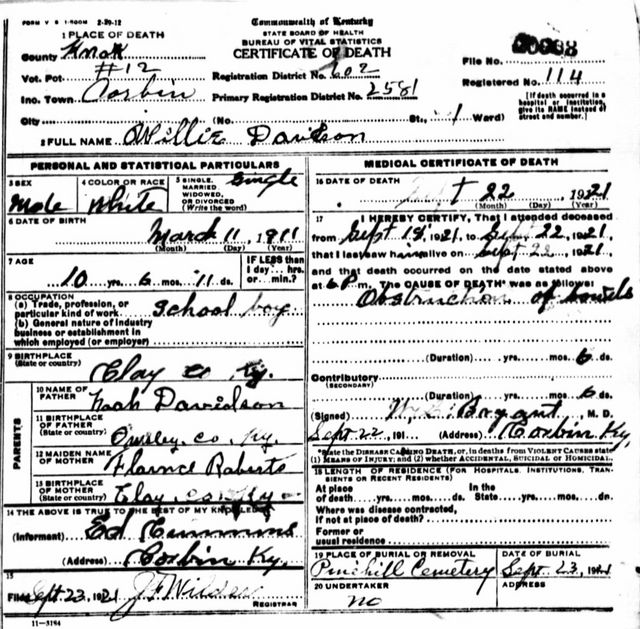 FORM V S 1-500M 2-20-12
Commonwealth of Kentucky
STATE BOARD OF HEALTH
BUREAU OF VITAL STATISTICS
CERTIFICATE OF DEATH
1 PLACE OF DEATH
County Knox
Vot. Pct #12
Inc. Town Corbin
City (No. St., Ward)
Registration District No. 602
Primary Registration District No. 2581
File No.
Registered No. 114
[If death occurred in a hospital or institution, give its NAME instead of street and number.]
2 FULL NAME Willie Davidson
PERSONAL AND STATISTICAL PARTICULARS
3 SEX Male
4 COLOR OR RACE White
5 SINGLE, MARRIED, WIDOWED, OR DIVORCED (Write the word) Single
6 DATE OF BIRTH March 11, 1911
(Month) (Day) (Year)
7 AGE 10 yrs. 6 mos. 11 ds.
IF LESS than 1 day... hrs. or... min.?
8 OCCUPATION
(a) Trade, profession, or particular kind of work School boy
(b) General nature of industry business or establishment in which employed (or employer)
9 BIRTHPLACE (State or country) Clay Co Ky.
PARENTS
10 NAME OF FATHER Noah Davidson
11 BIRTHPLACE OF FATHER (State or country) Owsley, Co, Ky.
12 MAIDEN NAME OF MOTHER Florence Roberts
13 BIRTHPLACE OF MOTHER (State or country) Clay Co Ky
14 THE ABOVE IS TRUE TO THE BEST OF MY KNOWLEDGE
(Informant) Ed
(Address) Corbin Ky.
15
Filed Sept 23, 1921
REGISTRAR
11-3184
MEDICAL CERTIFICATE OF DEATH
16 DATE OF DEATH Sept 22 1921
(Month) (Day) (Year)
17 I HEREBY CERTIFY, That I attended deceased
from Sept 18, 1921, to Sept 22, 1921,
that I last saw him alive on Sept 22, 1921,
and that death occurred on the date stated above
at 6 P m. The CAUSE OF DEATH* was as follows:
Obstruction of bowels
(Duration) yrs. mos. 6 ds.
Contributory (SECONDARY)
(Duration) yrs. mos. 6 ds.
(Signed) Bryant, M. D.
Sept. 22, 191 (Address) Corbin Ky,
*State the DISEASE CAUSING DEATH, or, in deaths from VIOLENT CAUSES state (1) MEANS OF INJURY; and (2) whether ACCIDENTAL, SUICIDAL or HOMICIDAL.
18 LENGTH OF RESIDENCE (FOR HOSPITALS, INSTITUTIONS, TRANSIENTS OR RECENT RESIDENTS)
At place of death yrs. mos. ds. In the State yrs. mos. dn.
Where was disease contracted, if not at place of death?
Former or usual residence
19 PLACE OF BURIAL OR REMOVAL Pinehill Cemetery
DATE OF BURIAL Sept. 23, 1921
20 UNDERTAKER no
ADDRESS